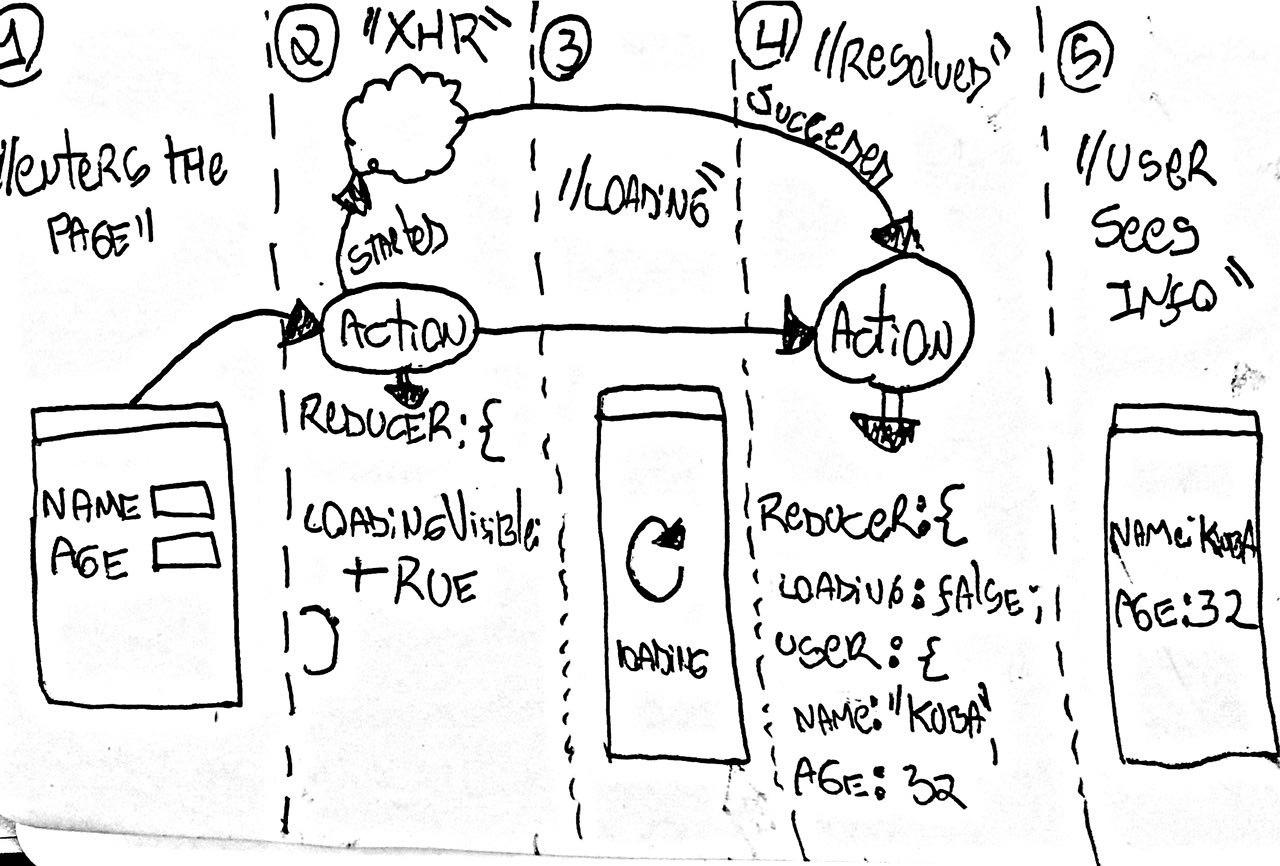 1
"enters the
PAGE"
NAME
AGE
2
"XHR"
STARTED
ACTION
REDUCER: {
LOADINGVisible:
TRUE
}
3
"LOADING"
LOADING
4
"Resolved"
Succeeded
ACTION
REDUCER: {
LOADING: fAlSE;
USER: {
NAME: "KUBA"
AGE: 32
5
"USER
Sees
INFO"
NAME: KUBA
AGE: 32